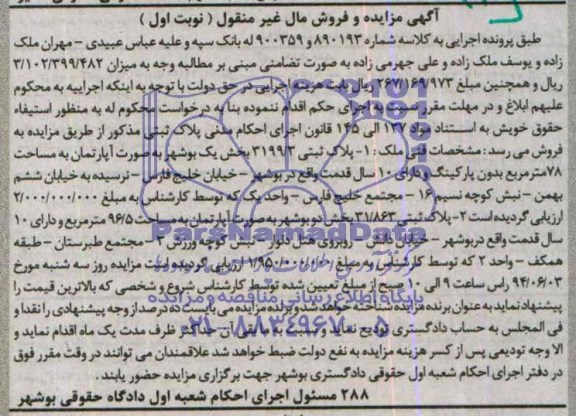 آگهی مزایده و فروش مال غیر منقول ( نوبت اول )
طبق پرونده اجرایی به کلاسه شماره ۸۹۰۱۹۳ و ۹۰۰۳۵۹ له بانک سپه و علیه عباس عبیدی - مهران ملک
زاده و یوسف ملک زاده و علی جهرمی زاده به صورت تضامنی مبنی بر مطالبه وجه به میزان ۳/۱۰۲/۳۹۹/۴۸۲
ریال و همچنین مبلغ ۲۶۷/۱۶۹/۹۷۳ ریال بابت هزینه اجرایی در حق دولت با توجه به اینکه اجراییه به محکوم
علیهم ابلاغ و در مهلت مقرر نسبت به اجرای حکم اقدام ننموده بنا به درخواست محکوم له به منظور استیفاء
حقوق خویش به استناد مواد ۱۳۷ الی ۱۴۵ قانون اجرای احکام مدنی پلاک ثبتی مذکور از طریق مزایده به
فروش می رسد : مشخصات فنی ملک : ۱- پلاک ثبتی ۳۱۹۹/۳ بخش یک بوشهر به صورت آپارتمان به مساحت
۷۸ مترمربع بدون پارکینگ و دارای ۱۰ سال قدمت واقع در بوشهر - خیابان خلیج فارس - نرسیده به خیابان ششم
بهمن - نبش کوچه نسیم ۱۶ - مجتمع خلیج فارس - واحد یک که توسط کارشناس به مبلغ ۲/۰۰۰/۰۰۰/۰۰۰
ارزیابی گردیده است ۲- پلاک ثبتی ۳۱/۸۶۳ بخش دو بوشهر به صورت آپارتمان به مساحت ۹۶/۵ مترمربع و دارای ۱۰
سال قدمت واقع در بوشهر - خیابان دانش - روبروی هتل دلوار - نبش کوچه ورزش ۳ - مجتمع طبرستان - طبقه
همکف - واحد ۲ که توسط کارشناس به مبلغ ۱/۹۵۰/۰۰۰/۰۰۰ ارزیابی گردیده است مزایده روز سه شنبه مورخ
۹۴/۰۶/۰۳ راس ساعت ۹ الی ۱۰ صبح از مبلغ تعیین شده توسط کارشناس شروع و شخصی که بالاترین قیمت را
پیشنهاد نماید به عنوان برنده مزایده شناخته خواهد شد و برنده مزایده می بایست ده درصد از وجه پیشنهادی را نقدا و
فی المجلس به حساب دادگستری تودیع نماید و نسبت به مابقی آن حداکثر ظرف مدت یک ماه اقدام نماید و
الا وجه تودیعی پس از کسر هزینه مزایده به نفع دولت ضبط خواهد شد علاقمندان می توانند در وقت مقرر فوق
در دفتر اجرای احکام شعبه اول حقوقی دادگستری بوشهر جهت برگزاری مزایده حضور یابند .
۲۸۸ مسئول اجرای احکام شعبه اول دادگاه حقوقی بوشهر
ParsNamadData
پایگاه اطلاع رسانی مناقصه و مزایده
۰۲۱-۸۸۳۴۹۶۷۰-۵